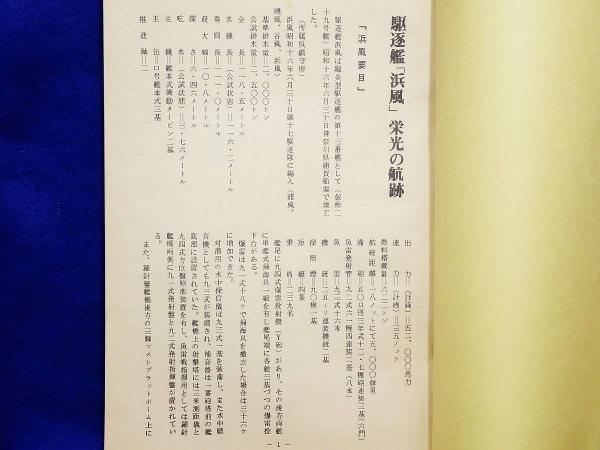 駆逐艦「浜風」栄光の航跡
『浜風要目』
駆逐艦浜風は陽炎型駆逐艦の第十三番艦として（仮称二
十九号艦）昭和十六年六月三十日神奈川県浦賀船渠で竣工
した。
（所属呉鎮守府）
浜風昭和十六年六月三十日第十七駆逐隊に編入（浦風、
磯風、谷風、浜風）
基準排水量＝二、〇〇〇トン
公試排水量＝二、五〇〇トン
全長＝一一八・五メートル
水線長＝（公試状態）＝一一六・二メートル
垂間長＝一一一・〇メートル
最大幅＝一〇・八メートル
深さ＝六・四六メートル
吃水＝（公試状態）＝三・七六メートル
主機＝艦本式衝動タービン二基
主缶＝ロ号艦本式三基
推進軸＝二
出力＝（計画）＝五二、〇〇〇馬力
速力＝（計画）＝三五ノット
燃料搭載量＝六二二トン
航続距離＝一八ノットにて五、〇〇〇浬
備砲＝五〇口径三年式十二・七糎砲連装三基（六門）
魚雷発射管＝九二式六一糎四連装二基（八本）
魚雷＝九三式十六本
機銃＝二五ミリ連装機銃二基
探照燈＝九〇糎一基
短艇＝四隻
乗員＝二三九名
艦尾に九四式爆雷投射機（Ｙ砲）があり、その後方両舷
に単艦式掃海具一組を有し艦尾端に各舷三基づつの爆雷投
下台がある。
爆雷は九一式十八ヶで掃海具を撤去した場合は三十六ヶ
に増加できた。
対潜用の水中探信儀は九三式一基を装備し、また水中聴
音機としても九三式が装備され、補音器は一番砲塔前の艦
底部に設置されていた。艦橋上の射撃塔には三米測距儀と
九四式方位盤照準装置を有し、魚雷戦指揮用としては羅針
艦橋両側に九一式発射盤と九二式発射指揮盤が置かれてい
る。
また、羅針盤艦橋後方の三脚マストプラットホーム上に
－1－